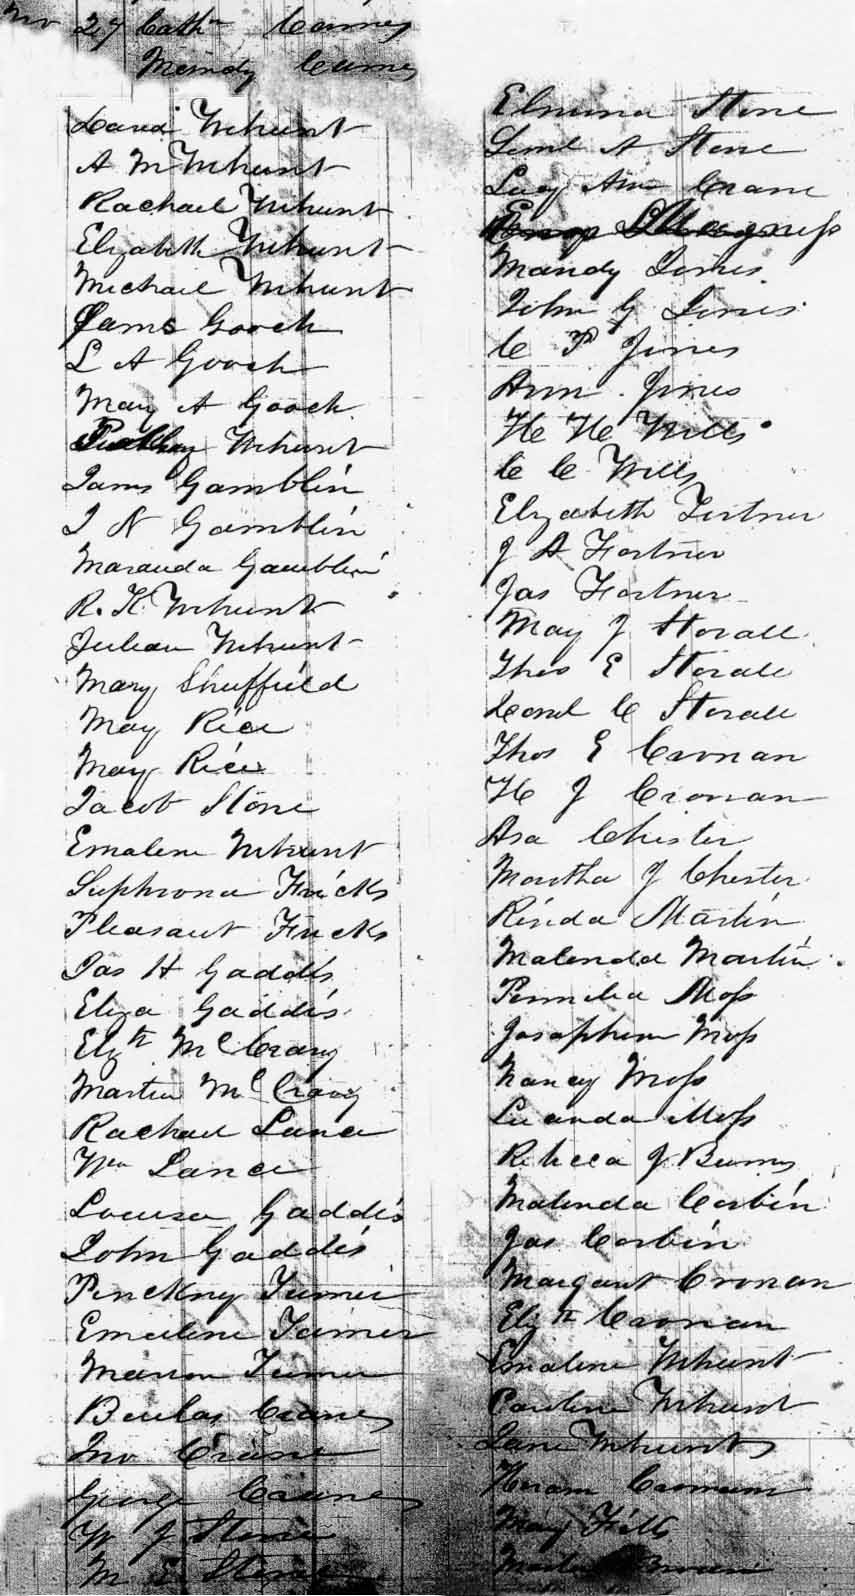 No 27 Cathn Carnes
Mandy Carnes
David Mchunt
A M Mchunt
Rachael Mchunt
Elizabeth Mchunt
Michael Mchunt
James Gooch
L A Gooch
Mary A Gooch
Mchunt
James Gamblin
J N Gamblin
Maranda Gamblin
R. K. Mchunt
Julian Mchunt
Mary Sheffield
May Rice
May Rice
Jacob Stone
Emalene Mchunt
Sephrona Fricks
Pleasant Fricks
Jas H Gaddis
Eliza Gaddis
Elzth McCrary
Martin McCrary
Rachael Lance
Wm Lance
Louisa Gaddis
John Gaddis
Pinckny Turner
Emaline Turner
Marion Turner
Crane
Jno Crane
George Crane
W J Stone
M E Stone
Elmina Stone
Saml A Stone
Lucy Ann Crane
Mandy Jones
John G Jones
C P Jones
Ann Jones
H H Wills
C C Wills
Elizabeth Fortner
J A Fortner
Jas Fortner
May J Stovall
Thos E Stovall
C Stovall
Thos E Cronan
H J Cronan
Asa Chester
Martha J Chester
Rinda Martin
Malenda Martin
Permelia Moss
Josaphine Moss
Nancy Moss
Luanda Moss
Rebecca J Burns
Malinda Corbin
Jas Corbin
Margaret Cronan
Elzth Cronan
Emaline Mchunt
Caroline Mchunt
Jane Mchunt
Hiram
May Fills